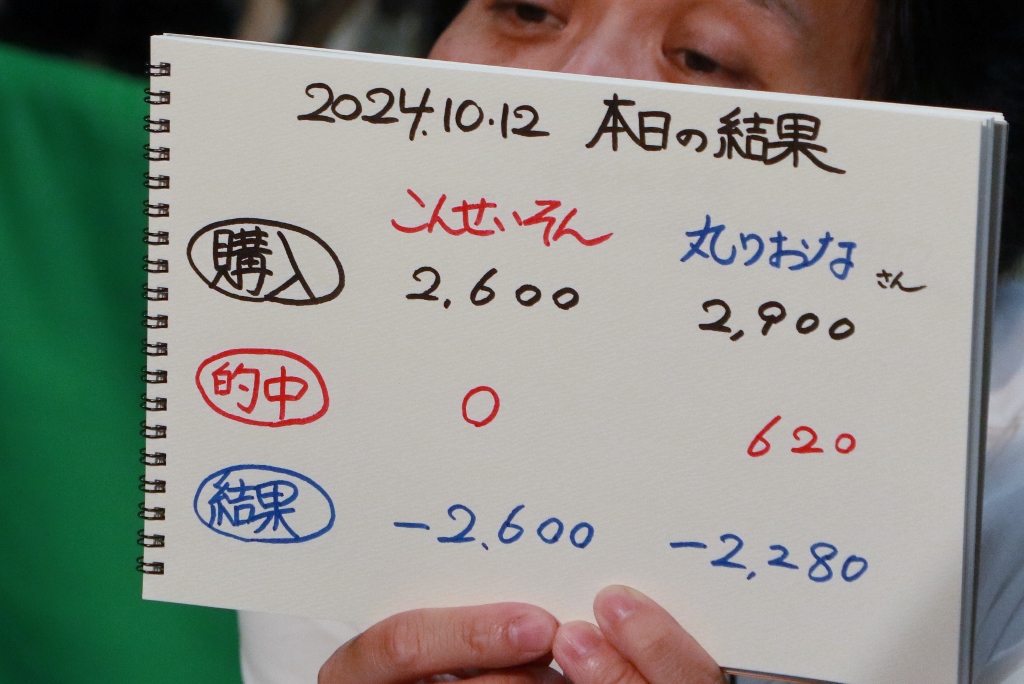 2024.10.12 本日の結果
こんせいそん 丸りおんな さん
購入 2,600 2,900
的中 0 620
結果 -2,600 -2,280